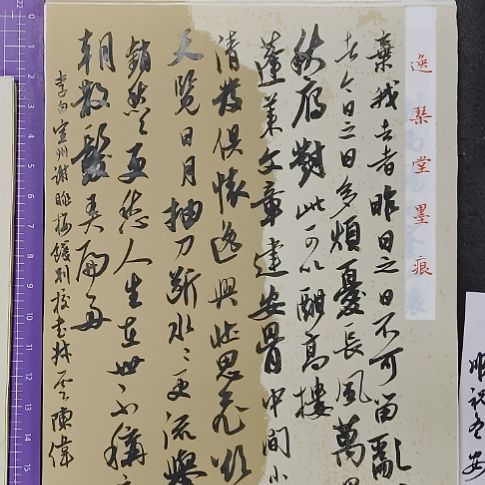 逸琴堂墨痕
棄我去者昨日之日不可留亂
者今日之日多煩憂長風萬
秋雁對此可以酣高樓
蓬萊文章建安骨中間小
清發俱懷逸興壯思飛欲
天覽日月抽刀斷水々更流舉
銷愁更愁人生在世不稱
朝散髮弄扁舟
李白宣州謝朓樓餞別校書叔雲陳偉
順祝冬安